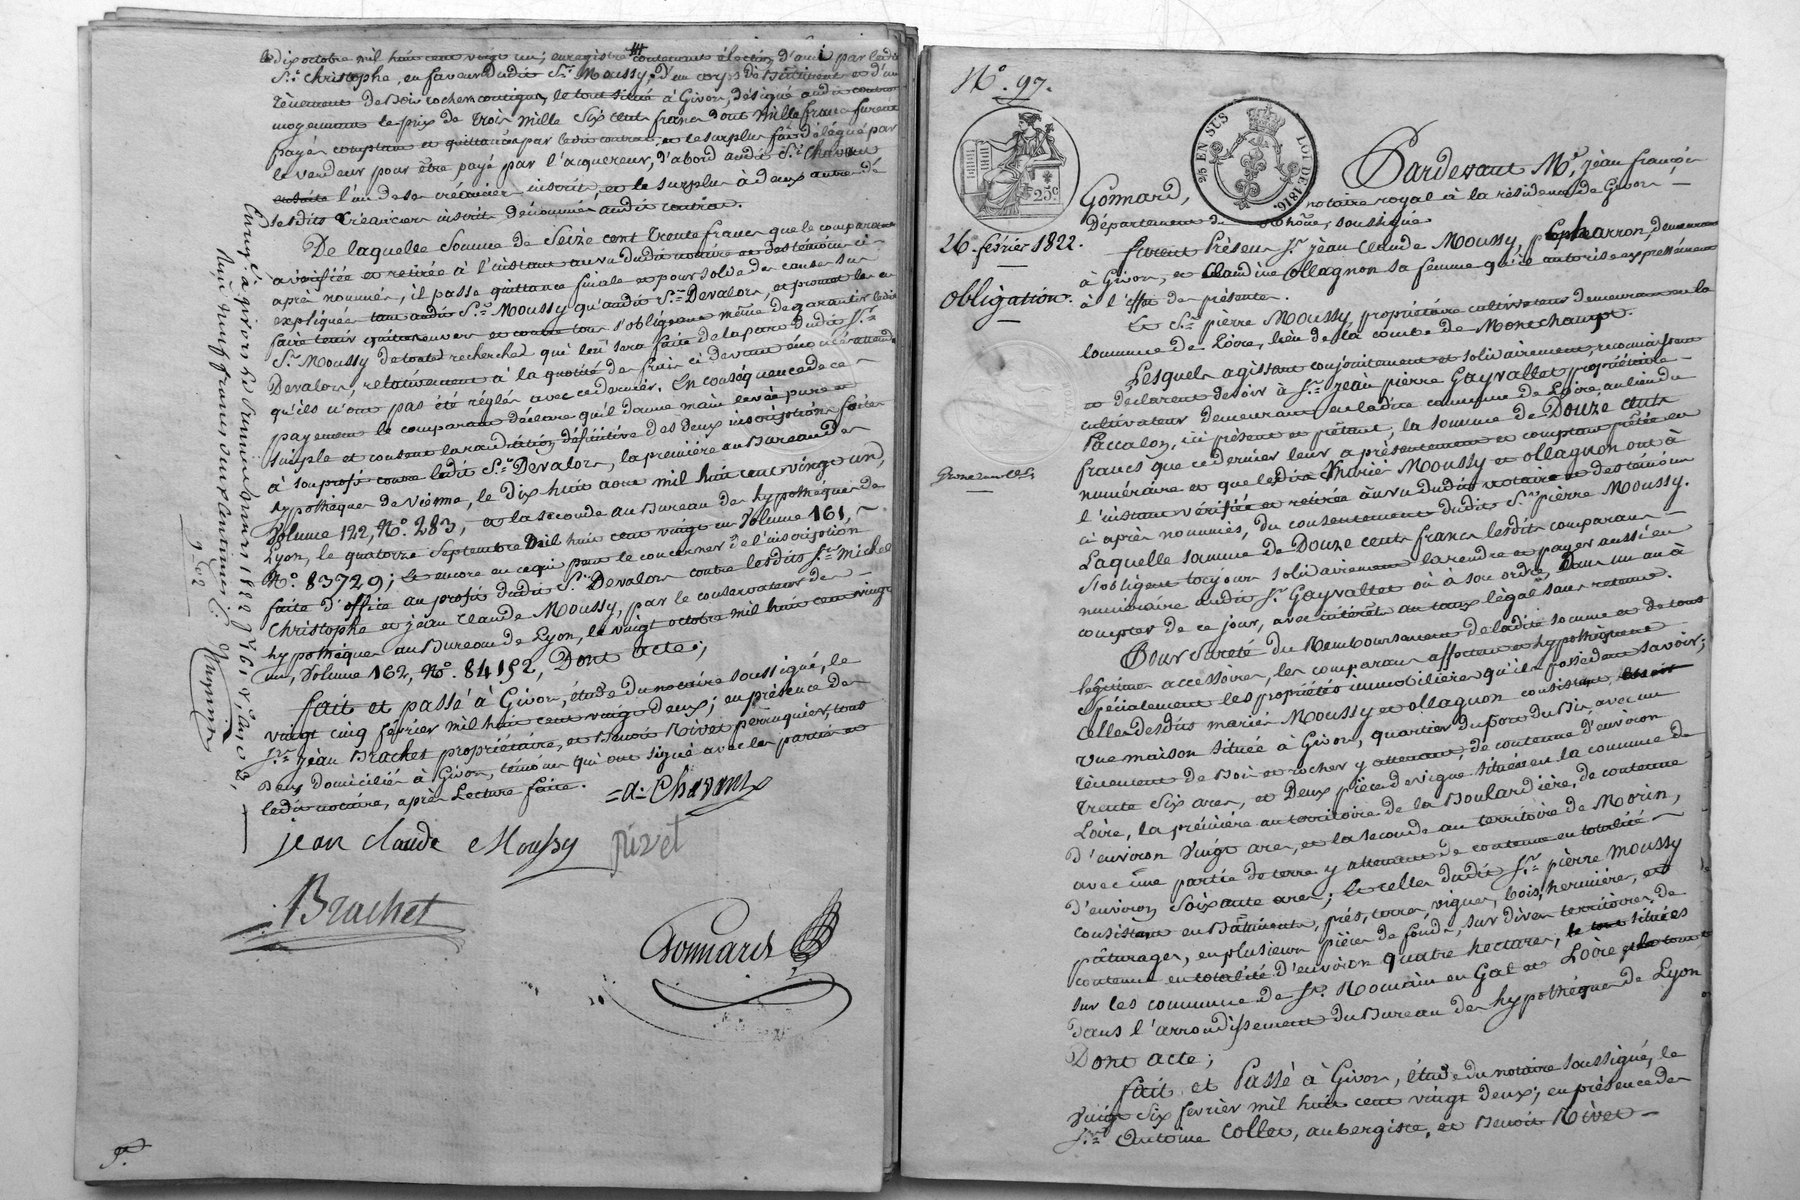 dix octobre mil huit cent vingt un; enregistré contenant élection d'ami par ledit
Sr. Christophe, en faveur dudit Sr. Moussy, d'un corps de Bâtiment et d'un
tènement de Bois rocher contigus, le tout situé à Givors, désigné audit contrat
moyennant le prix de trois mille Six cent francs dont mille francs furent
payés comptant et quittancés par ledit contrat, et le surplus fût délégué par
le vendeur pour être payé par l'acquereur, d'abord audit Sr. Chavan
l'un de ses créanciers inscrits, et le surplus à deux autres de
sesdits créanciers inscrits dénommés audit contrat.
De laquelle Somme de Seize cent trente francs que le comparant
a vérifiée et retirée à l'instant au vu dudit notaire et des témoins ci-
après nommés, il passe quittance finale et pour solde des causes sus
expliquées tant audit Sr. Moussy qu'audit Sr. Devalors, et promet les en
faire tenir quittes envers et contre tous s'obligeant même de garantir ledit
Sr. Moussy de toutes recherches qui lui sera faite de la part dudit Sr.
Devalors, relativement à la quotité des frais ci devant énoncés attendu
qu'ils n'ont pas été réglés avec ce dernier. En conséquence de ce
payement le comparant déclare qu'il donne main levée pure et
simple et consent la radiation définitive des deux inscriptions faites
à son profit contre ledit Sr. Devalors, la première au Bureau des
hypothèques de Vienne, le dix huit aout mil huit cent vingt un,
Volume 122, No. 283, et la seconde au Bureau des hypothèques de
Lyon, le quatorze Septembre mil huit cent vingt un Volume 161,
No. 83729; et encore en ce qui peut le concerner de l'inscription
faite d'office au profit dudit Sr. Devalors contre lesdits Srs. Michel
Christophe et jean Claude Moussy, par le conservateur des
hypothèques au Bureau de Lyon, le vingt octobre mil huit cent vingt
un, Volume 162, No. 84152, Dont acte;
fait et passé à Givors, étude du notaire soussigné, le
vingt cinq février mil huit cent vingt deux; en présence des
Srs. jean Brachet propriétaire, et Benoit Rivet perruquier, tous
Deux domiciliés à Givors, témoins qui ont signé avec les parties et
ledit notaire, après Lecture faite.
= a: Chavan
jean claude Moussy
rivet
Brachet
Gonnard
No. 97.
25 EN SUS
LOI DE 1816.
25c
Pardevant Me. jean françois
Gonnard,
notaire royal à la résidence de Givors,
Département du Rhône, soussigné
26 février 1822.
furent Présens Sr. jean Claude Moussy, charron, demeurant
à Givors, et Claudine Ollagnon sa femme qu'il autorise expressément
à l'effet des présentes.
Obligation.
Et Sr. pierre Moussy, propriétaire cultivateur demeurant en la
commune de Loire, lieu de la combe de Montchamps.
Lesquels agissant conjointement et solidairement, reconnaissent
et déclarent devoir à Sr. jean pierre Gayvallet propriétaire
cultivateur demeurant en ladite commune de Loire, au lieu du
Paccalon, ici présent et prêtant, la somme de Douze cents
francs que ce dernier leur a présentement et comptant prêtée en
numéraire et que lesdits mariés Moussy et Ollagnon ont à
l'instant vérifiée et retirée au vu dudit notaire et des témoins
ci après nommés, du consentement dudit Sr. pierre Moussy.
Laquelle somme de Douze cents francs lesdits comparans
s'obligent toujours solidairement la rendre et payer aussi en
numéraire audit Sr. Gayvallet ou à son ordre dans un an à
compter de ce jour, avec intérêt au taux légal sans retenue.
Pour Sureté du Remboursement de ladite somme et de tous
légitimes accessoires, les comparans affectent et hypothèquent
spécialement les propriétés immobilières qu'ils possèdent savoir;
Celles desdits mariés Moussy et Ollagnon consistent,
une maison située à Givors, quartier du fort du Bis, avec un
tènement de Bois et rocher y attenant, de contenue d'environ
trente Six ares, et Deux pièces de vigne situées en la commune de
Loire, la première au territoire de la Boulardière, de contenue
d'environ vingt ares, et la seconde au territoire de Morin,
avec une partie de terre y attenant de contenue en totalité
d'environ Soixante ares; Et celles dudit Sr. pierre Moussy
consistant en Bâtiments, prés, terres, vignes, bois, hermières, et
pâturages, en plusieurs pièces de fonds, sur divers territoires, de
contenue en totalité d'environ quatre hectares, situées
sur les communes de St. Romain en Gal et Loire
dans l'arrondissement du Bureau des hypothèques de Lyon
Dont acte;
fait et Passé à Givors, étude du notaire soussigné, le
vingt Six février mil huit cent vingt deux; en présence des
Srs. Antoine Collet, aubergiste, et Benoit Rivet